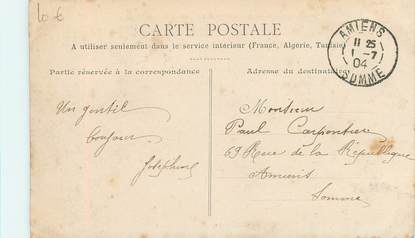 10 €
CARTE POSTALE
A utiliser seulement dans le service intérieur (France, Algérie, Tunisie)
Partie réservée à la correspondance
Adresse du destinataire
AMIENS
11 25
1 - 7
04
SOMME
Un gentil
bonjour
Joséphine
Monsieur
Paul Carpentier
69 Rue de la République
Amiens
Somme